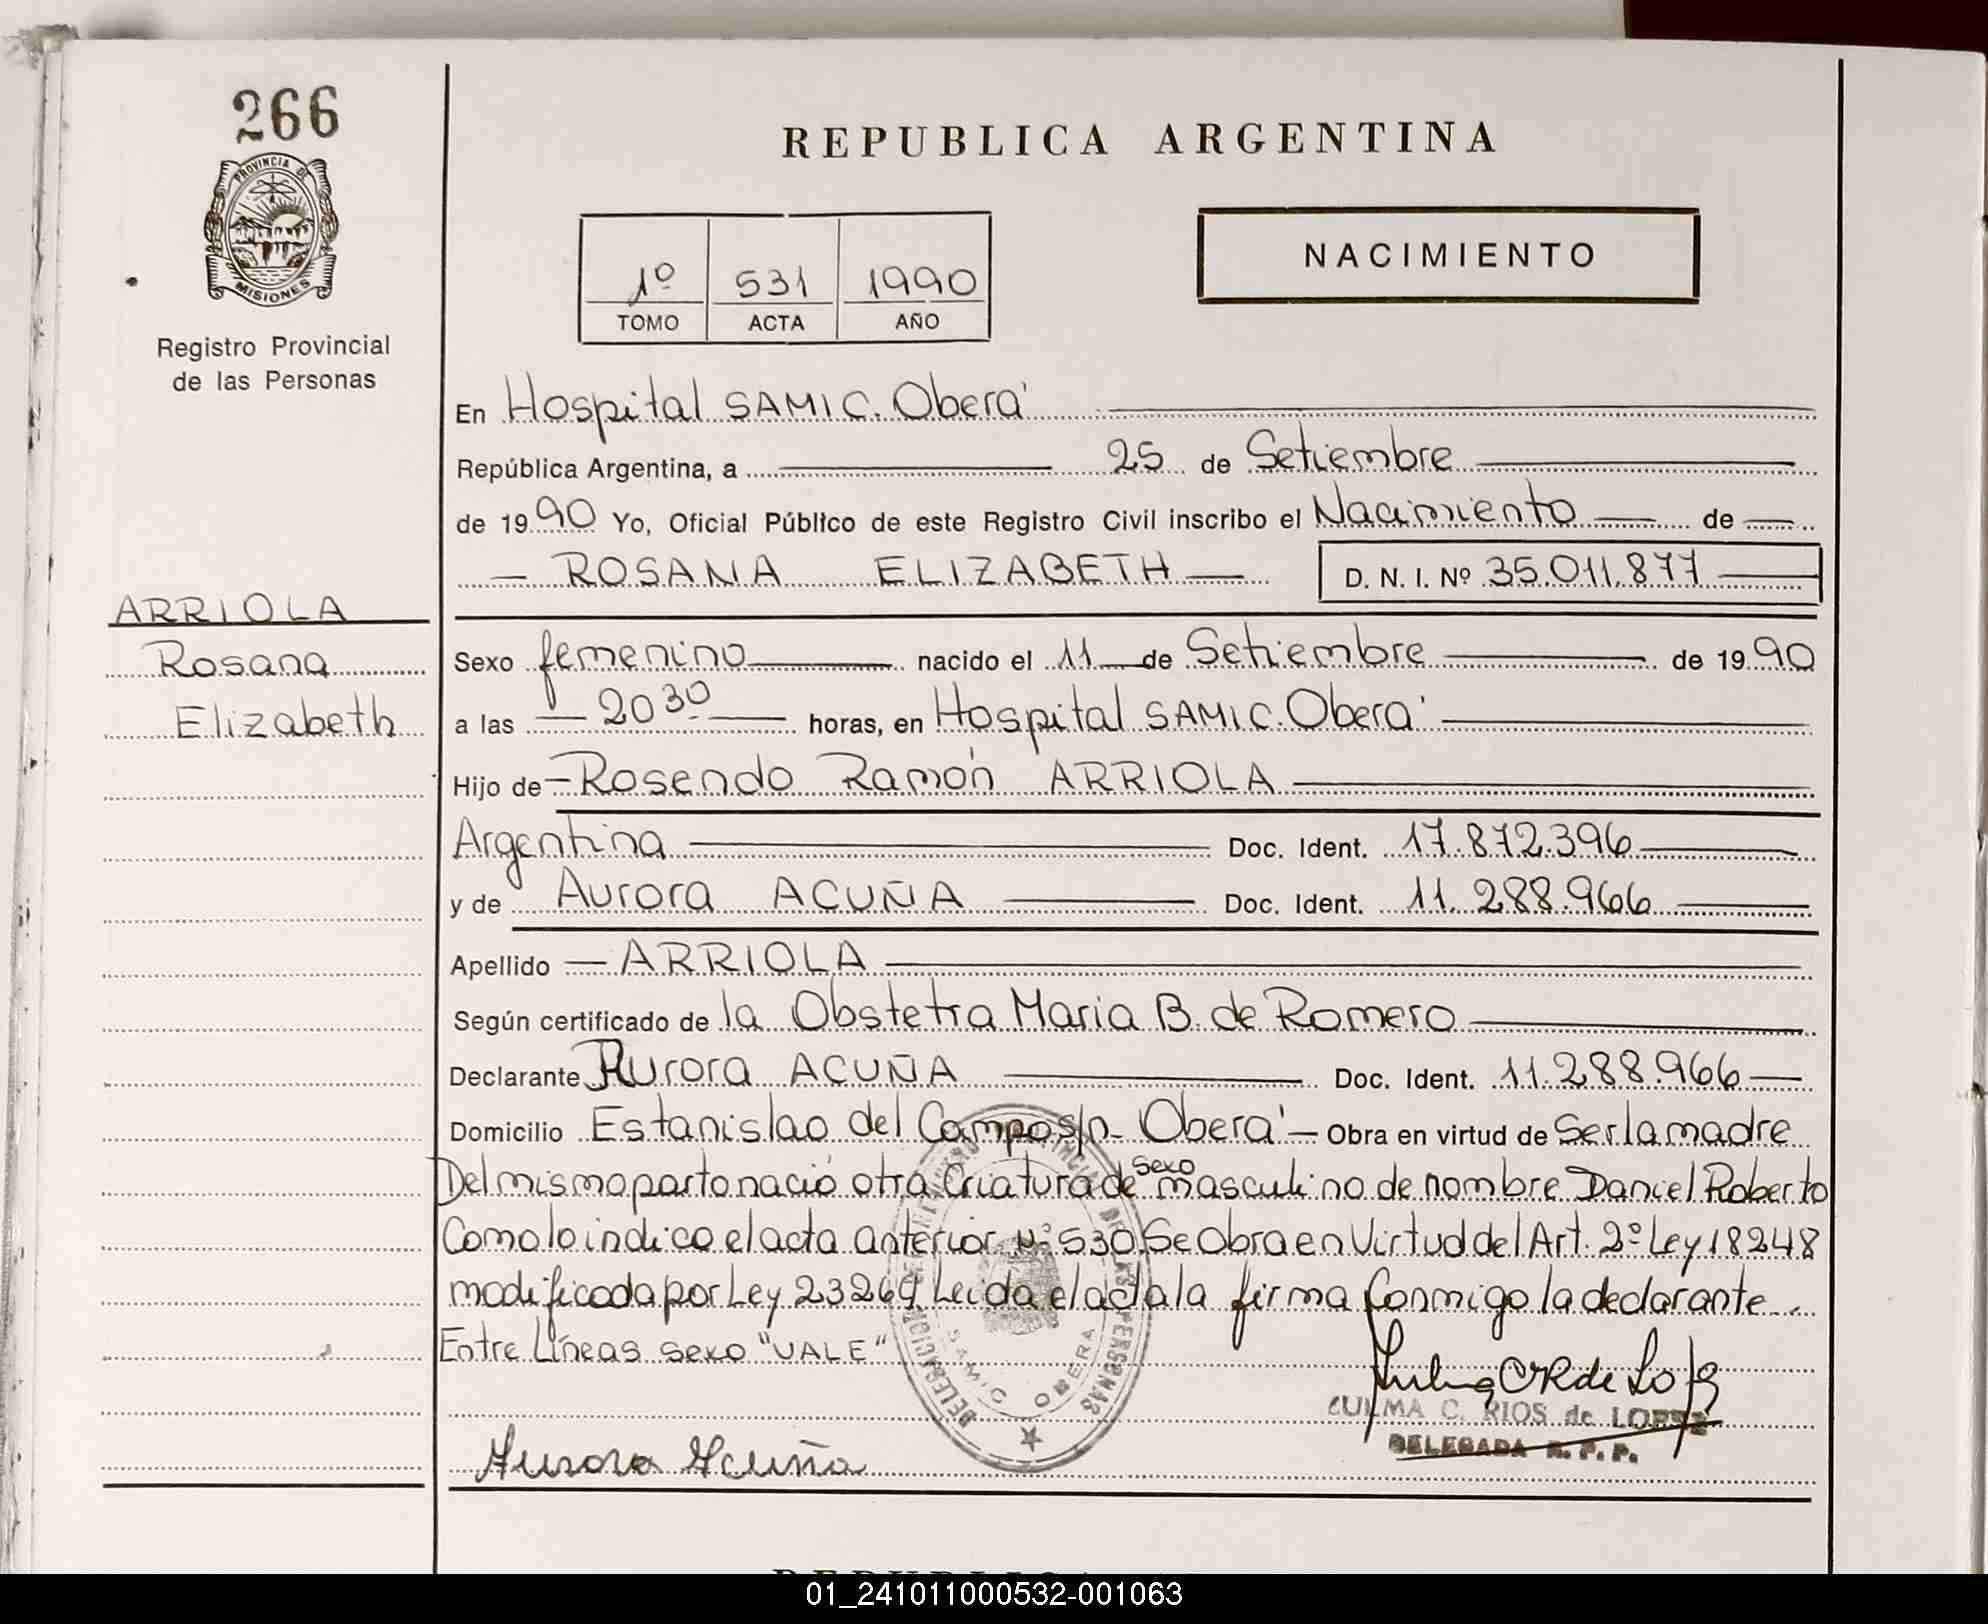 266
PROVINCIA DE
MISIONES
Registro Provincial
de las Personas
REPUBLICA ARGENTINA
1º 531 1990
TOMO ACTA AÑO
NACIMIENTO
En Hospital SAMIC. Oberá
República Argentina, a 25 de Setiembre
de 1990 Yo, Oficial Público de este Registro Civil inscribo el Nacimiento de
ROSANA ELIZABETH D. N. I. Nº 35.011.877
ARRIOLA
Rosana
Elizabeth
Sexo femenino nacido el 11 de Setiembre de 1990
a las 20 30 horas, en Hospital SAMIC. Oberá
Hijo de Rosendo Ramón ARRIOLA
Argentina Doc. Ident. 17.872.396
y de Aurora ACUÑA Doc. Ident. 11.288.966
Apellido ARRIOLA
Según certificado de la Obstetra Maria B. de Romero
Declarante Aurora ACUÑA Doc. Ident. 11.288.966
Domicilio Estanislao del Campo s/n - Oberá - Obra en virtud de Ser la madre
Del mismo parto nació otra Criatura de sexo masculino de nombre Daniel Roberto
Como lo indico el acta anterior Nº 530 Se Obra en Virtud del Art. 2º Ley 18248
modificada por Ley 23264. Leida el acta la firma Conmigo la declarante
Entre Líneas sexo "VALE"
SAMIC OBERA
ZULMA C. RIOS de LOPEZ
DELEGADA R. P. P.
Aurora Acuña
01_241011000532-001063